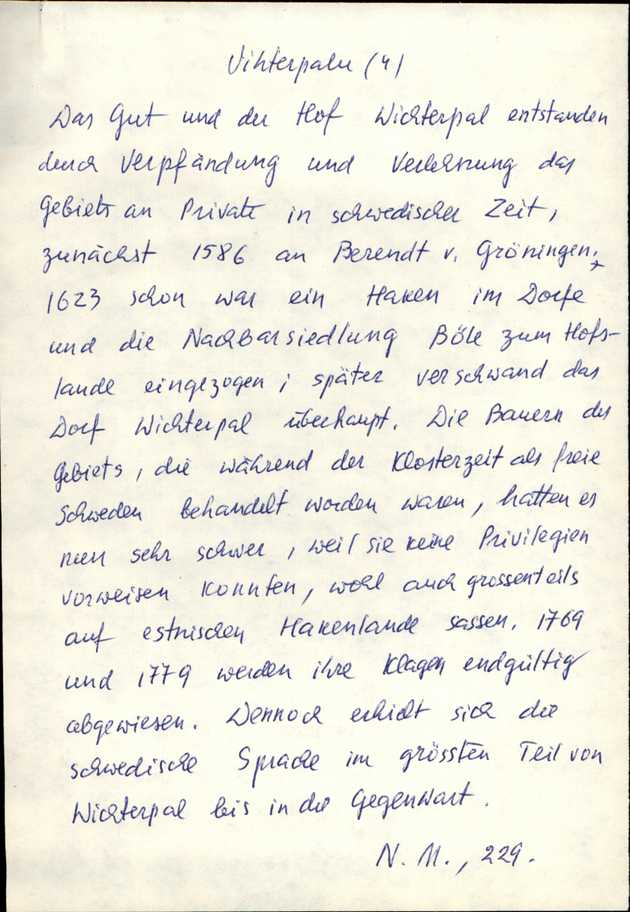 Vihterpalu (4)
Das Gut und der Hof Wichterpal entstanden
durch Verpfändung und Verlehnung des
Gebiets an Private in schwedischer Zeit,
zunächst 1586 an Berendt v. Gröningen,
1623 schon war ein Haken im Dorfe
und die Nachbarsiedlung Böle zum Hofs-
lande eingezogen; später verschwand das
Dorf Wichterpal überhaupt. Die Bauern des
Gebiets, die während der Klosterzeit als freie
Schweden behandelt worden waren, hatten es
nun sehr schwer, weil sie keine Privilegien
vorweisen konnten, wohl auch grossenteils
auf estnischen Hakenlande sassen. 1769
und 1779 werden ihre Klagen endgültig
abgewiesen. Dennoch erhielt sich die
schwedische Sprache im grössten Teil von
Wichterpal bis in die Gegenwart.
N. M., 229.